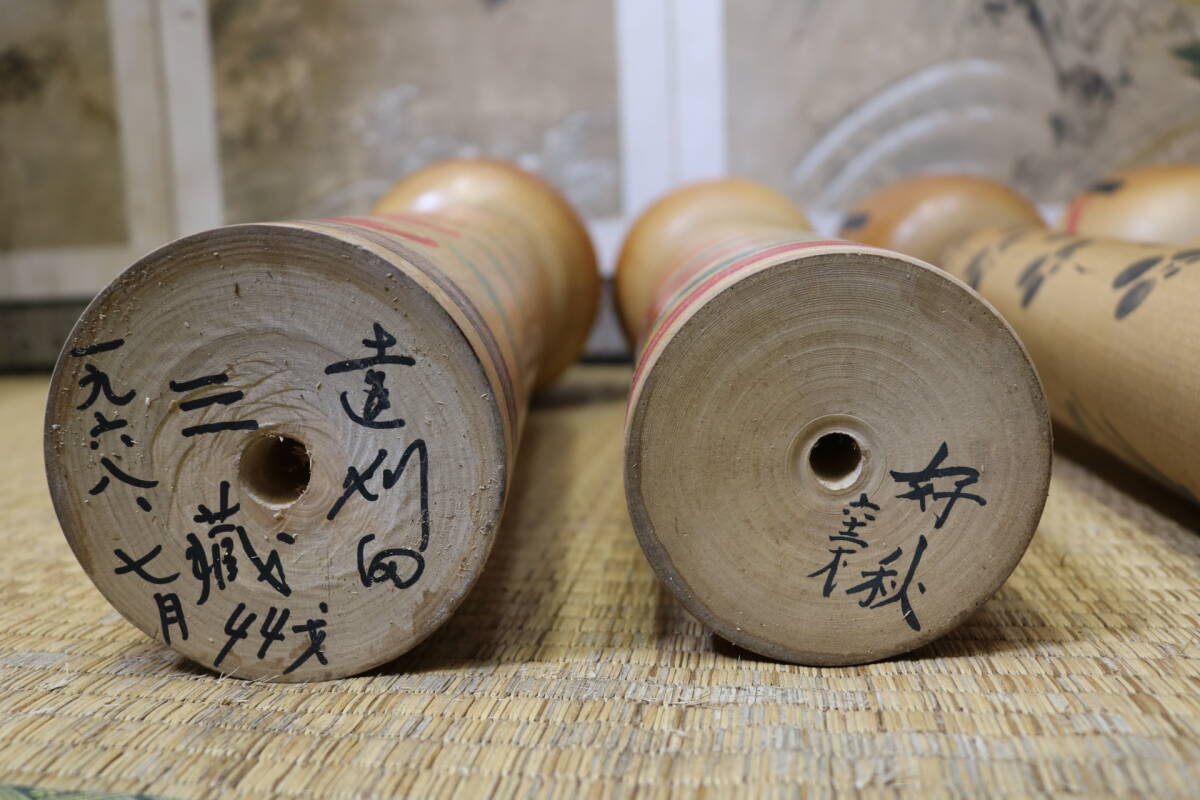 遠刈田
二三蔵
44才
一九六八、七月
好秋